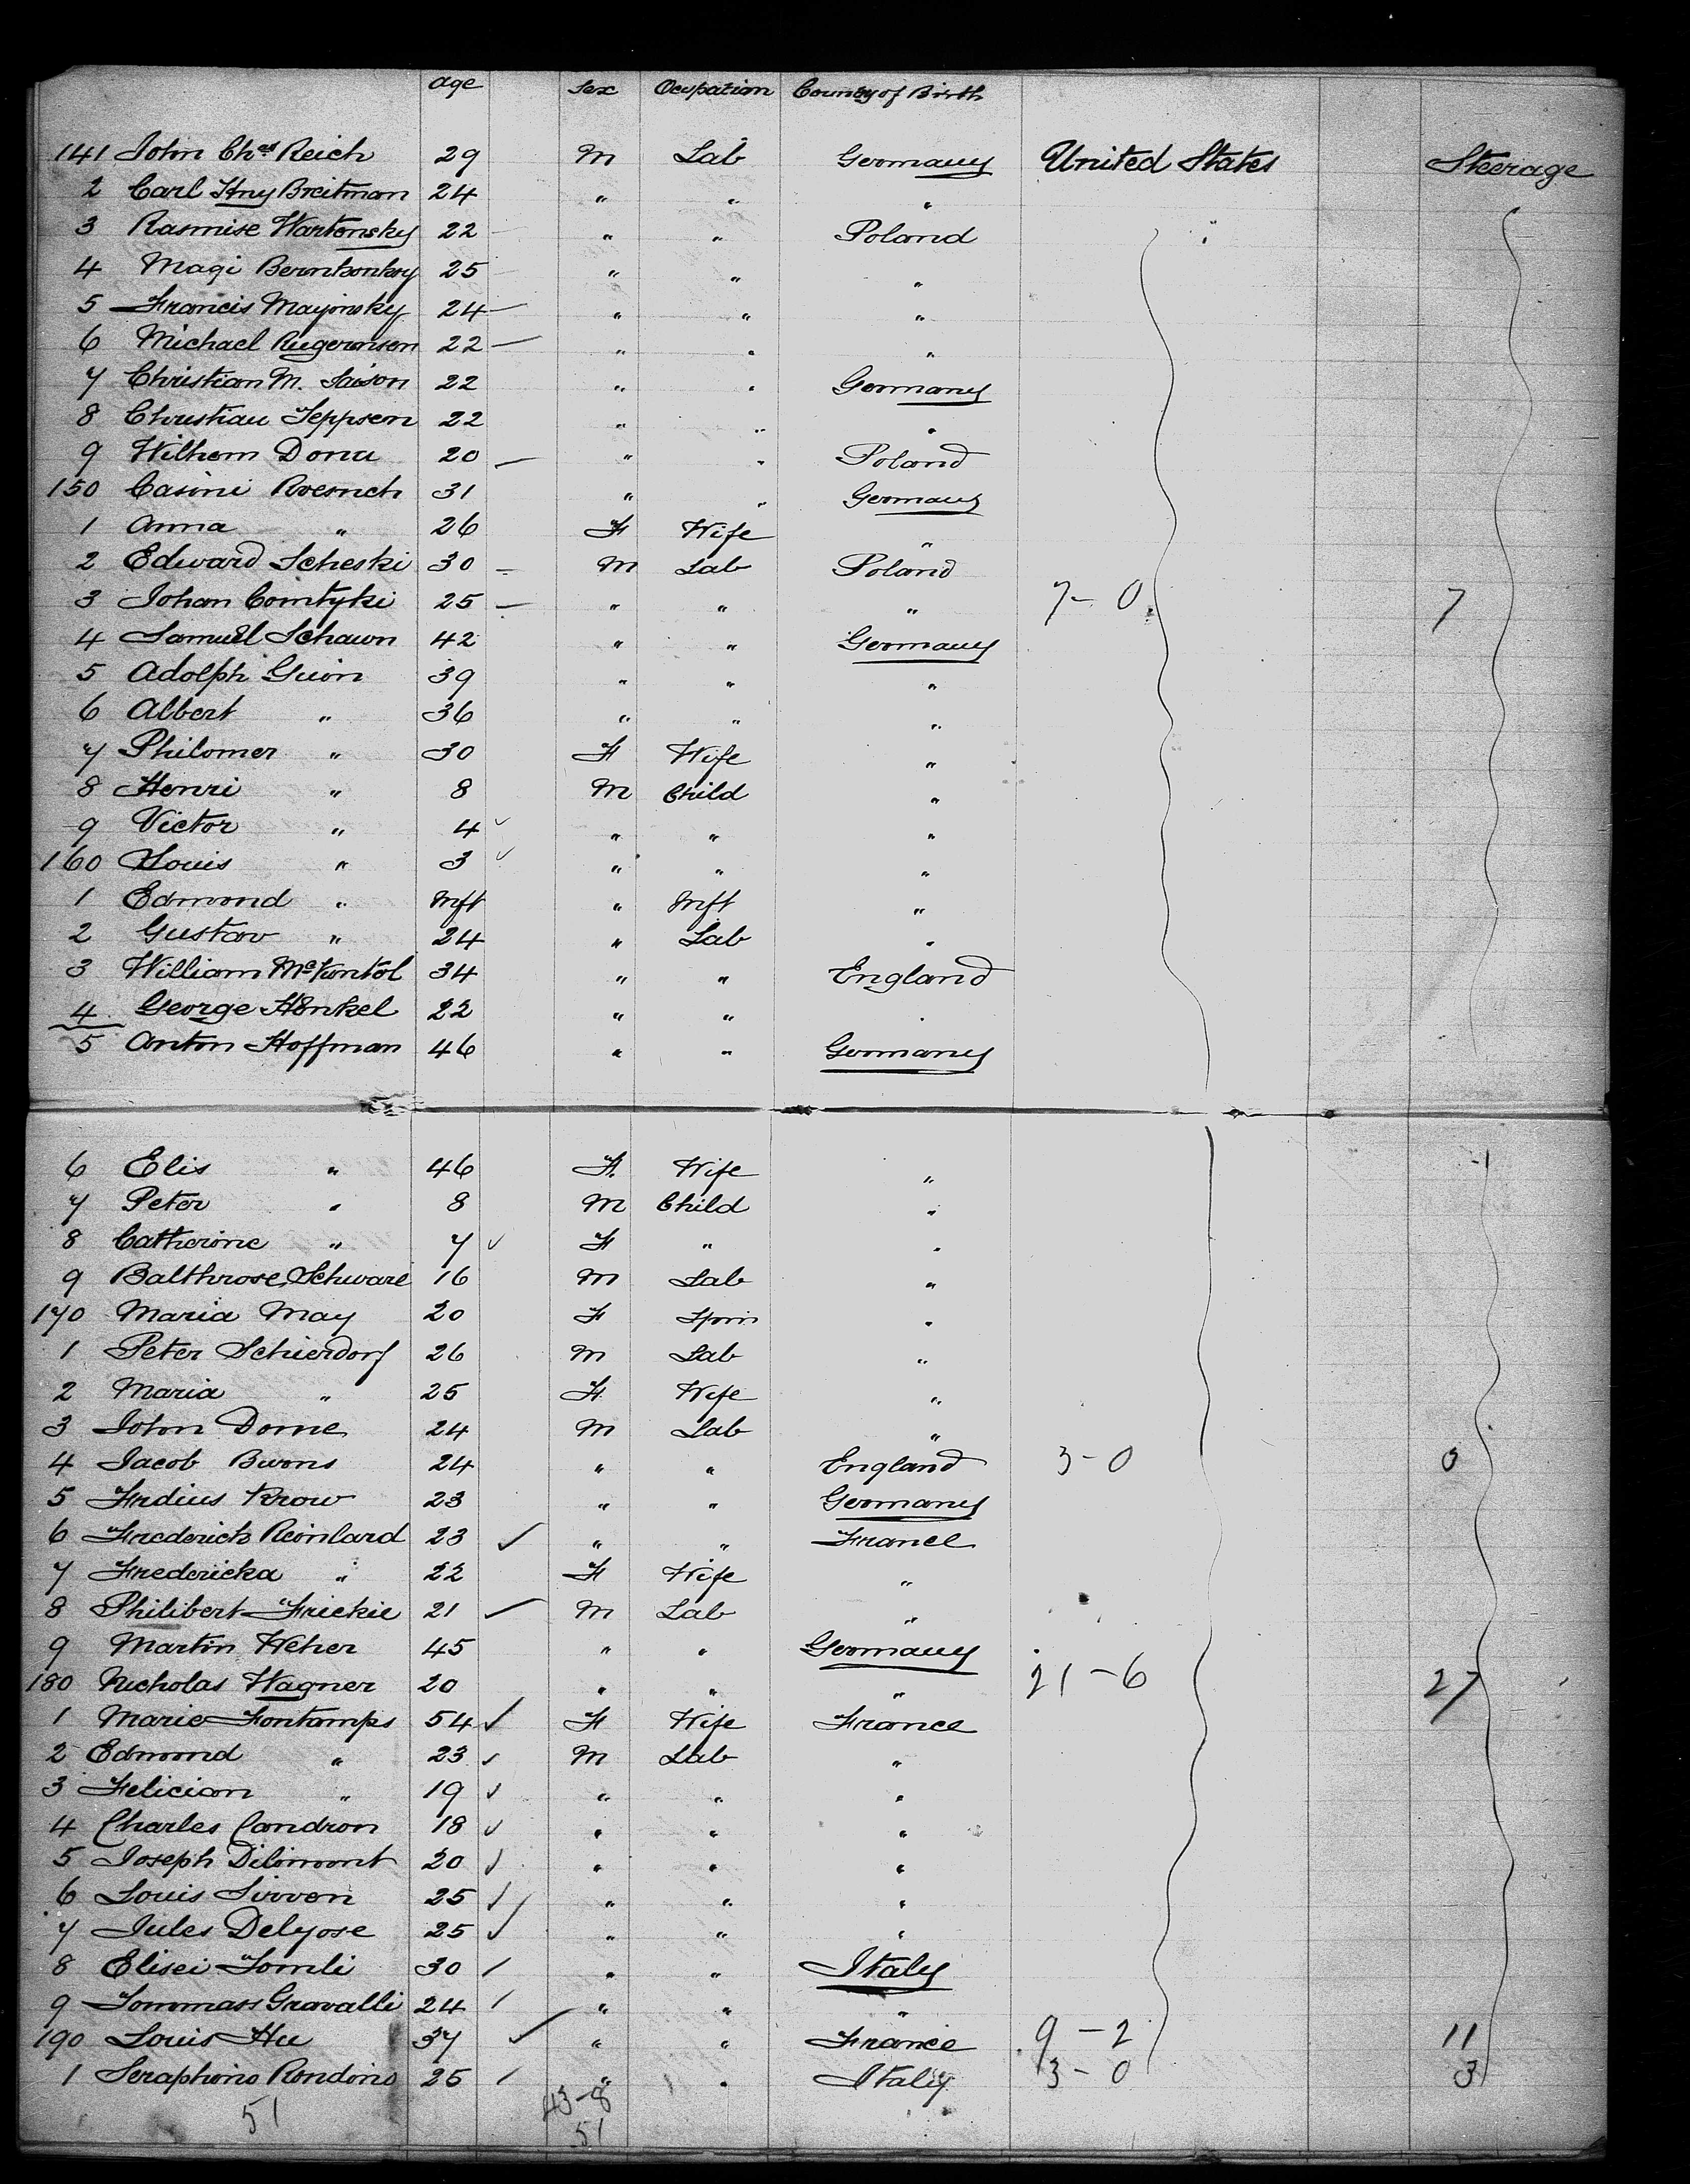 Age Sex Ocupation Country of Birth
141 John Chas Reich 29 M Lab Germany United States Steerage
2 Carl Hny Breitman 24 " " "
3 Rasmise Wartensky 22 " " Poland "
4 Magi 25 " " "
5 Francis Mayonsky 24 " " "
6 Michael 22 " " "
7 Christian M. Saison 22 " " Germany
8 Christian Jeppsen 22 " " "
9 Wilhem Dona 20 " " Poland
150 Casimi Roesnch 31 " " Germany
1 Anna " 26 F Wife "
2 Edward Scheski 30 M Lab Poland
3 Johan Comtyki 25 " " " 7-0 7
4 Samuel Schawn 42 " " Germany
5 Adolph Guion 39 " " "
6 Albert " 36 " " "
7 Philomer " 30 F Wife "
8 Henri " 8 M Child "
9 Victor " 4 " " "
160 Louis " 3 " " "
1 Edmond " Inft " Inft "
2 Gustav " 24 " Lab "
3 William 34 " " England
4 George Henkel 22 " " "
5 Anton Hoffman 46 " " Germany
6 Elis " 46 F. Wife "
7 Peter " 8 M Child "
8 Catherine " 7 F " "
9 Balthrose Schware 16 M Lab "
170 Maria May 20 F Spin "
1 Peter Schierdorf 26 M Lab "
2 Maria " 25 F Wife "
3 John Dome 24 M Lab "
4 Jacob Burns 24 " " England 3-0
5 Frdius Krow 23 " " Germany
6 Frederich Reinlard 23 " " France
7 Fredericka " 22 F Wife "
8 Philibert Frickie 21 M Lab "
9 Martin Weher 45 " " Germany
180 Nicholas Wagner 20 " " " 21-6 27
1 Marie Fontamps 54 F Wife France
2 Edmond " 23 M Lab "
3 Felician " 19 " " "
4 Charles Candron 18 " " "
5 Joseph Dilimont 20 " " "
6 Louis Sirven 25 " " "
7 Jules Delyose 25 " " "
8 Elisei Tomli 30 " " Italy
9 Tommass Gravalli 24 " " "
190 Louis Hu 37 " " France 9-2 11
1 Seraphino Rondino 25 " " Italy 3-0 3
51 43-8
51